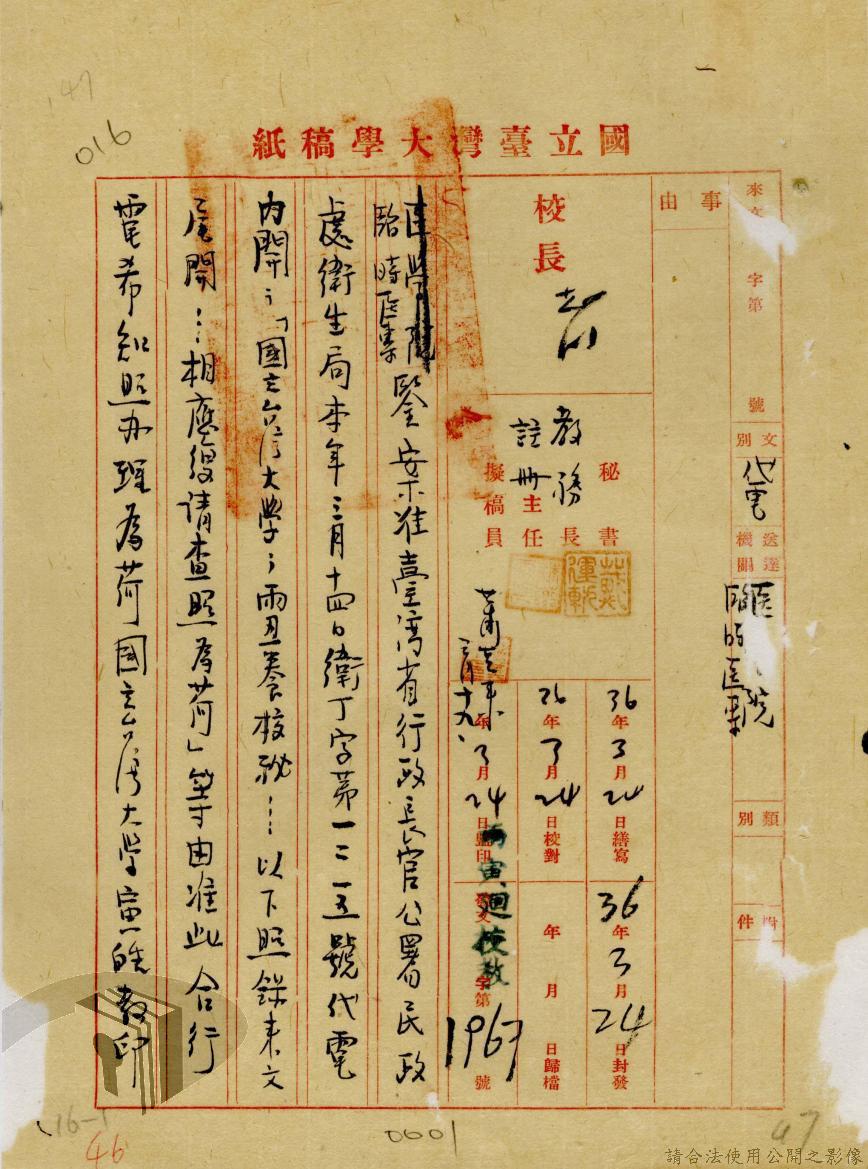 國立臺灣大學稿紙
016
來文 字第 號
文別 代電
送達機關 醫 院
臨時醫專
類別
附件
事由
校長
秘書
教務長
註冊主任
擬稿員
36年3月24日繕寫
36年3月24日校對
36年3月24日監印
36年3月24日封發
年 月 日歸檔
發文 字第1967號
三月十九
醫學院
臨時醫專
鑒案准臺灣省行政長官公署民政
處衛生局本年三月十四日衛丁字第一二一五號代電
內開:「國立台湾大學;雨丑養校秘…以下照錄來文
尾開…相應復請查照為荷」等由准此合行
電希知照办理為荷國立台湾大学寅皓教印
16-1
46
0601
47
請合法使用公開之影像